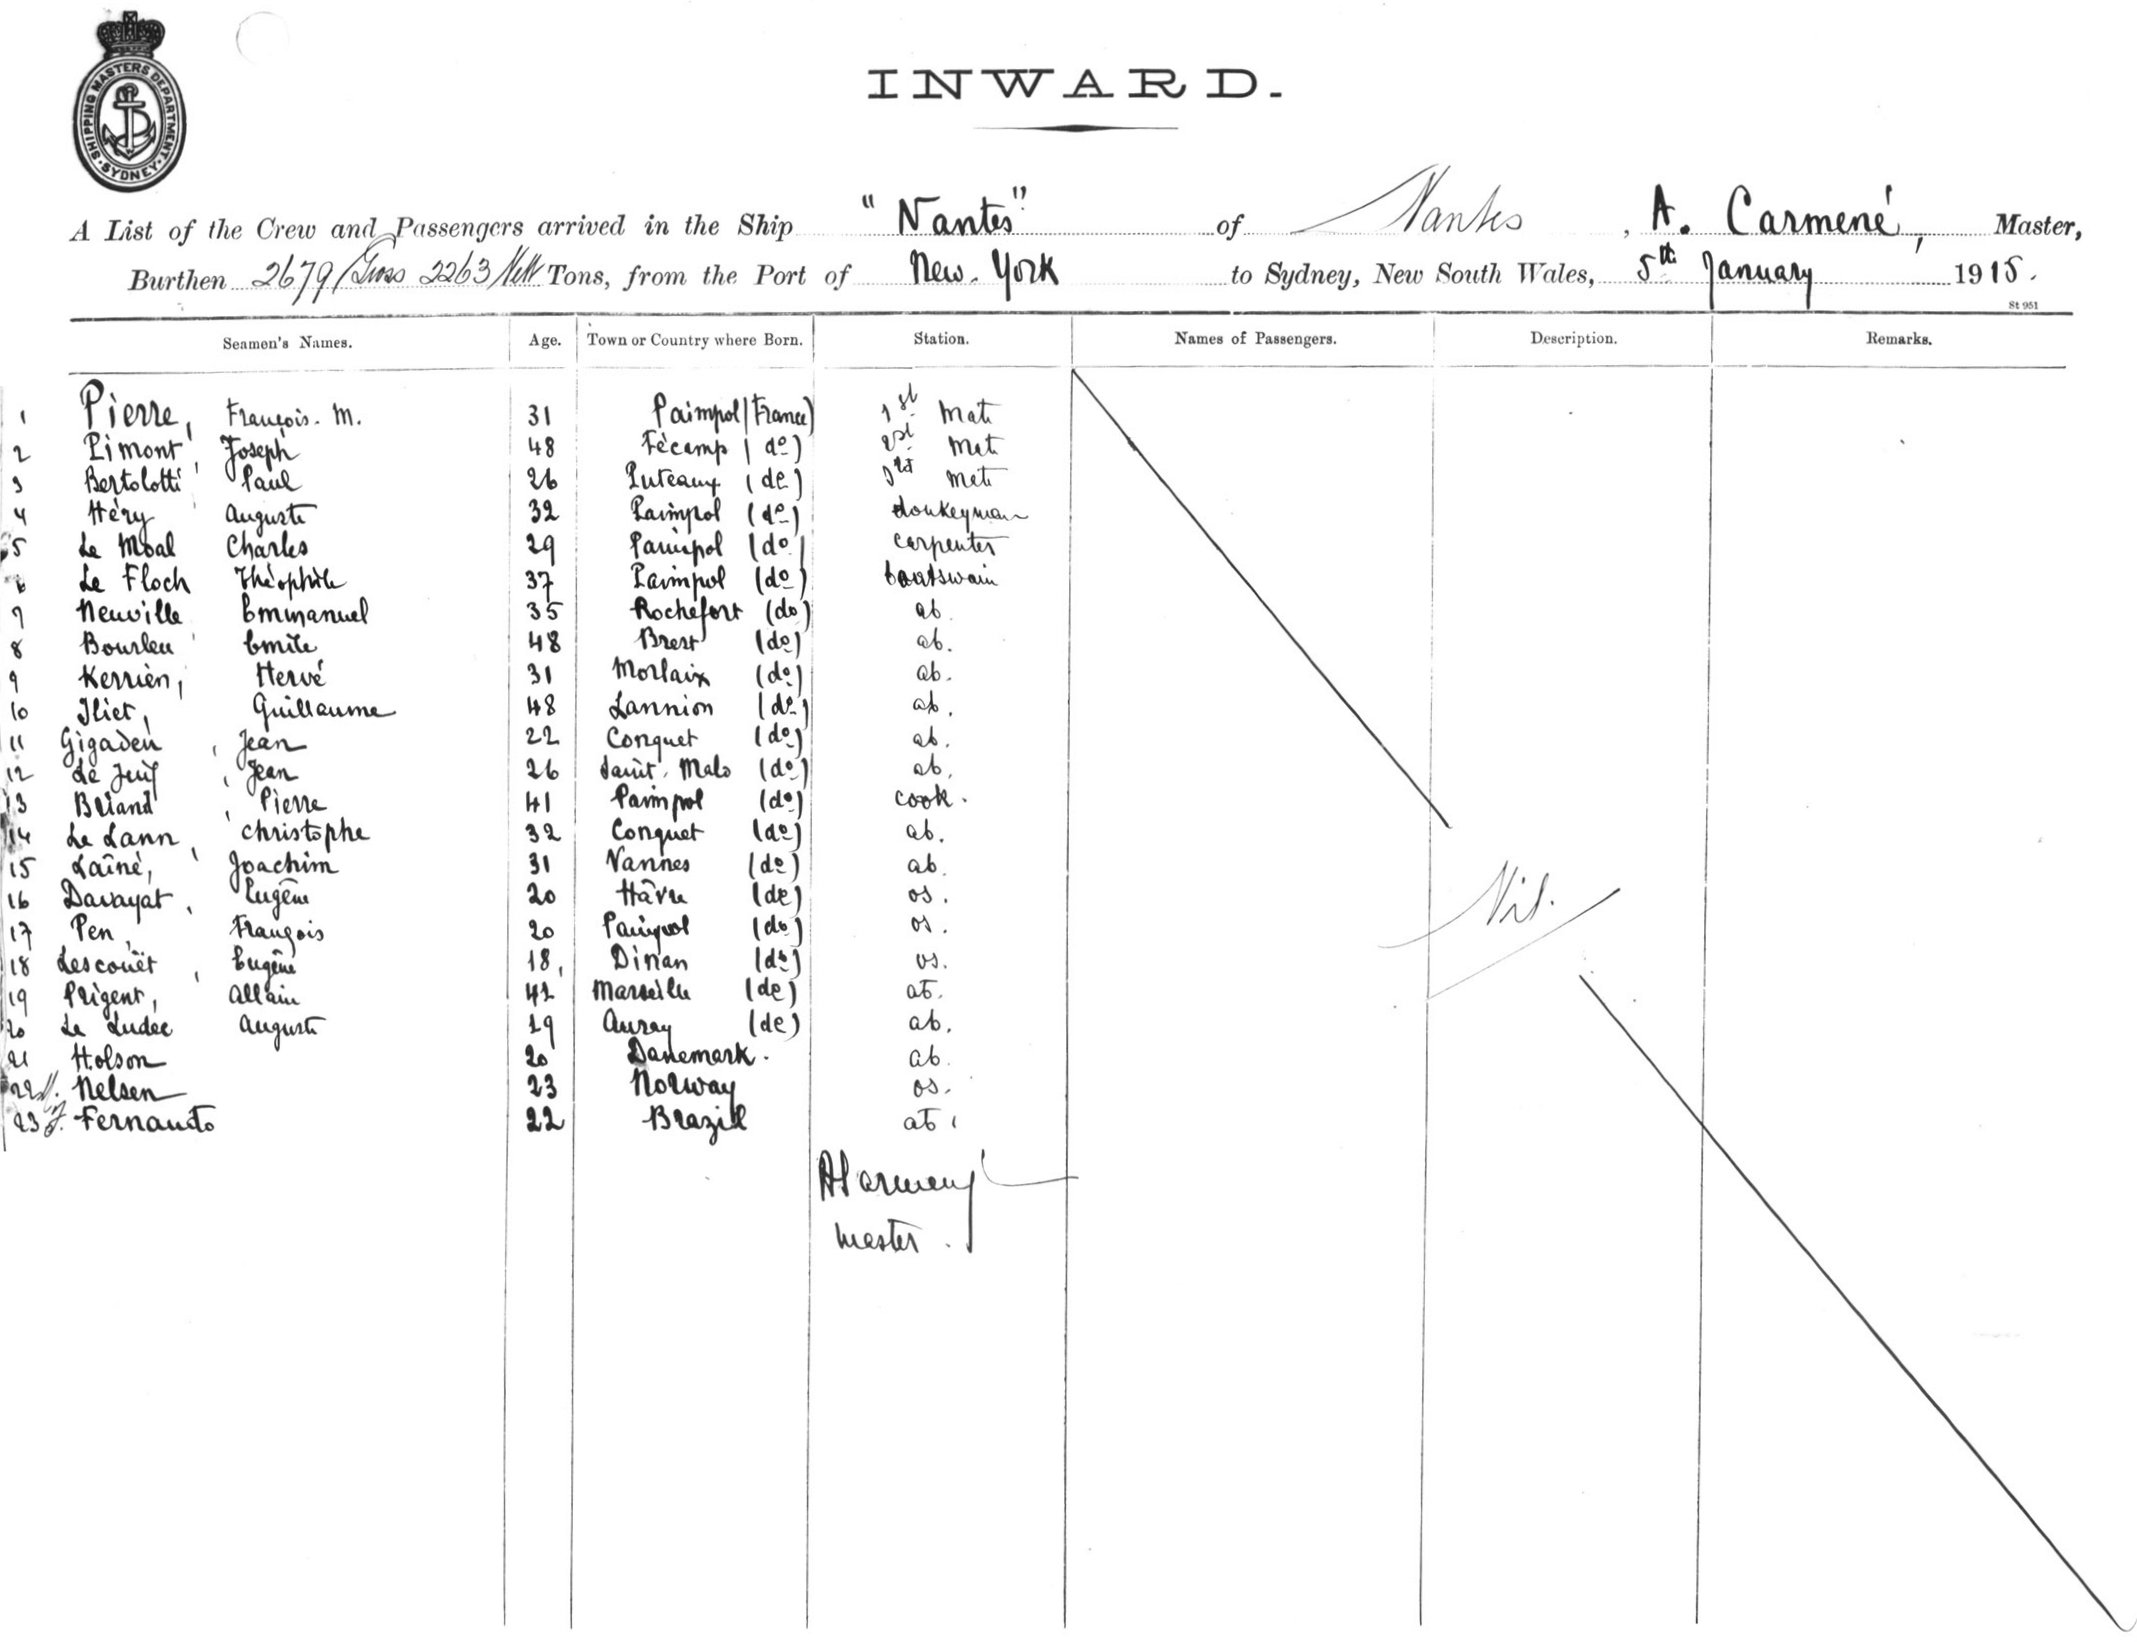 SHIPPING MASTERS DEPARTMENT · SYDNEY ·
INWARD.
A List of the Crew and Passengers arrived in the Ship "Nantes" of Nantes, A. Carmené, Master,
Burthen 2679 Gross 2263 Nett Tons, from the Port of New-York to Sydney, New South Wales, 5th January 1915.
St 951
Seamen's Names. Age. Town or Country where Born. Station. Names of Passengers. Description. Remarks.
1 Pierre, François. M. 31 Paimpol (France) 1st Mate
2 Pimont, Joseph 48 Fécamp (do) Mate
3 Bertolotti, Paul 26 Puteaux (do) 3rd Mate
4 Héry, Auguste 32 Paimpol (do) donkeyman
5 Le Moal Charles 29 Paimpol (do) carpenter
6 Le Floch Théophile 37 Paimpol (do) boatswain
7 Neuville Emmanuel 35 Rochefort (do) ab
8 Bourleu Emile 48 Brest (do) ab.
9 Kerrien, Hervé 31 Morlaix (do) ab.
10 Iliet, Guillaume 48 Lannion (do) ab.
11 Gigadeu, Jean 22 Conquet (do) ab.
12 Le Juif, Jean 26 Saint-Malo (do) ab.
13 Briand, Pierre 41 Paimpol (do) cook.
14 Le Lann, Christophe 32 Conquet (do) ab.
15 Laîné, Joachim 31 Vannes (do) ab.
16 Davayat, Eugène 20 Hâvre (do) os.
17 Pen, François 20 Paimpol (do) os.
18 Lescouët, Eugène 18, Dinan (do) os.
19 Prigent, Allain 42 Marseille (do) ab.
20 Le Ludec Auguste 19 Auray (do) ab.
21 Holson 20 Danemark. ab.
22 Nelsen 23 Norway os.
23 Fernando 22 Brazil ab.
Nil.
A Carmené
Master.